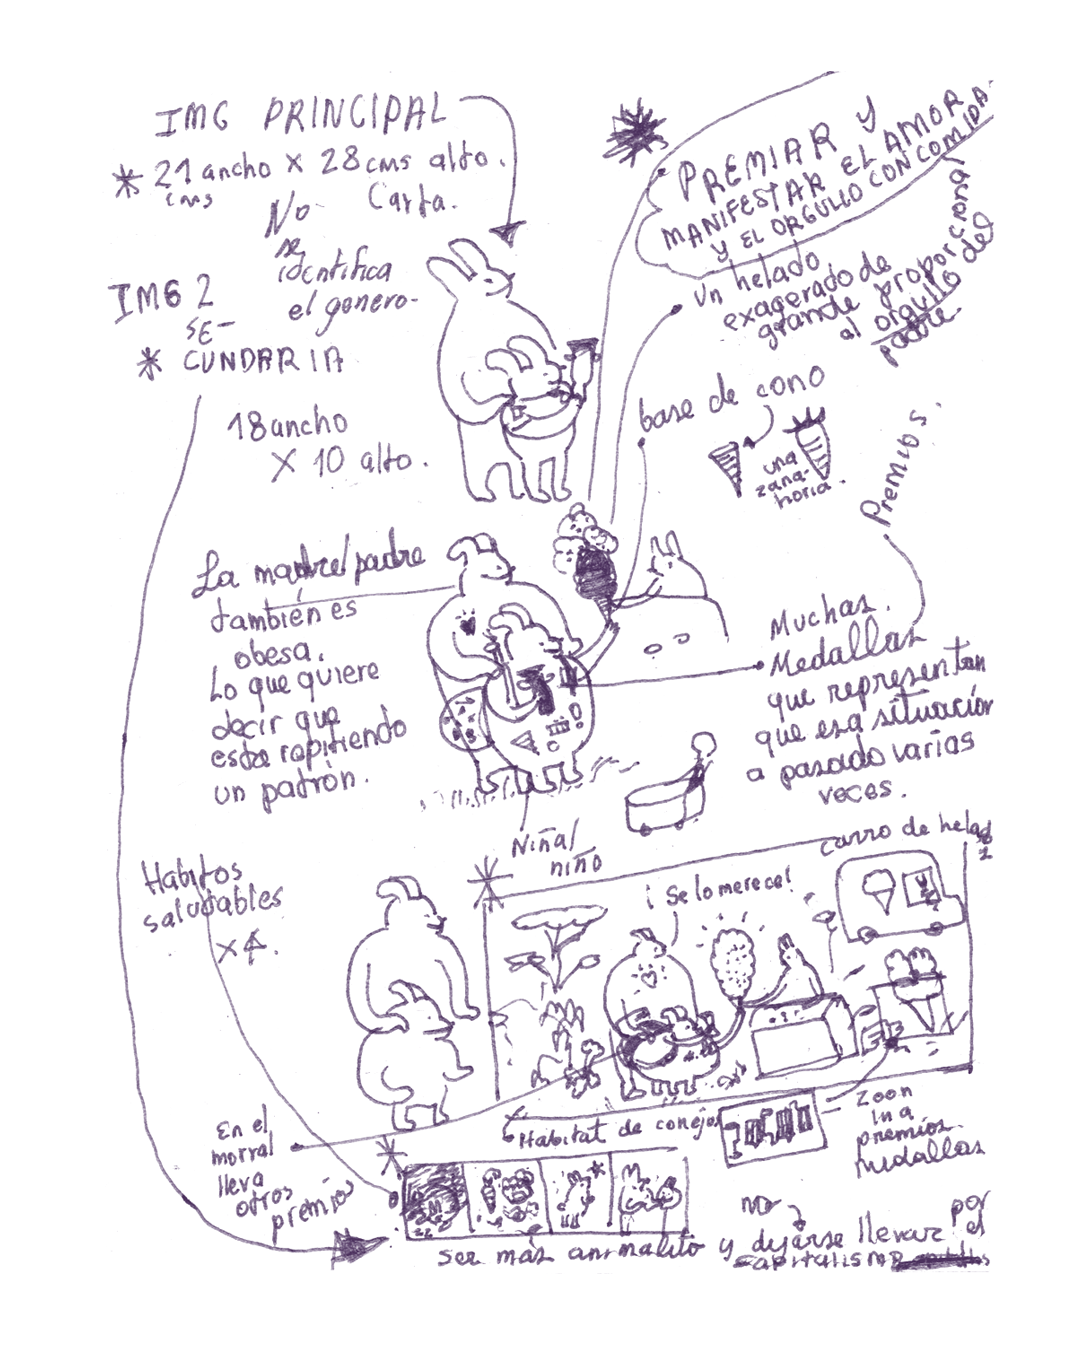 IMG PRINCIPAL
* 21 ancho X 28 cms alto.
cms
Carta.
No
se
identifica
el genero-
IMG 2
SE-
* CUNDARIA
18 ancho
X 10 alto.
PREMIAR Y
MANIFESTAR EL AMOR
Y EL ORGULLO CON COMIDA.
Un helado
exagerado de
grande proporcional
al orgullo del
padre.
base de cono
una
zana-
horia.
Premios.
La madre/padre
también es
obesa.
Lo que quiere
decir que
esta repitiendo
un patrón.
Muchas
Medallas
que representan
que esa situación
a pasado varias
veces.
Niña/
niño
carro de helados
¡Se lo merece!
Habitos
saludables
x4.
Habitat de conejos
Zoon
in a
premios
medallas
En el
morral
lleva
otros
premios
ser más animalito y no dejarse llevar por
el
capitalismo